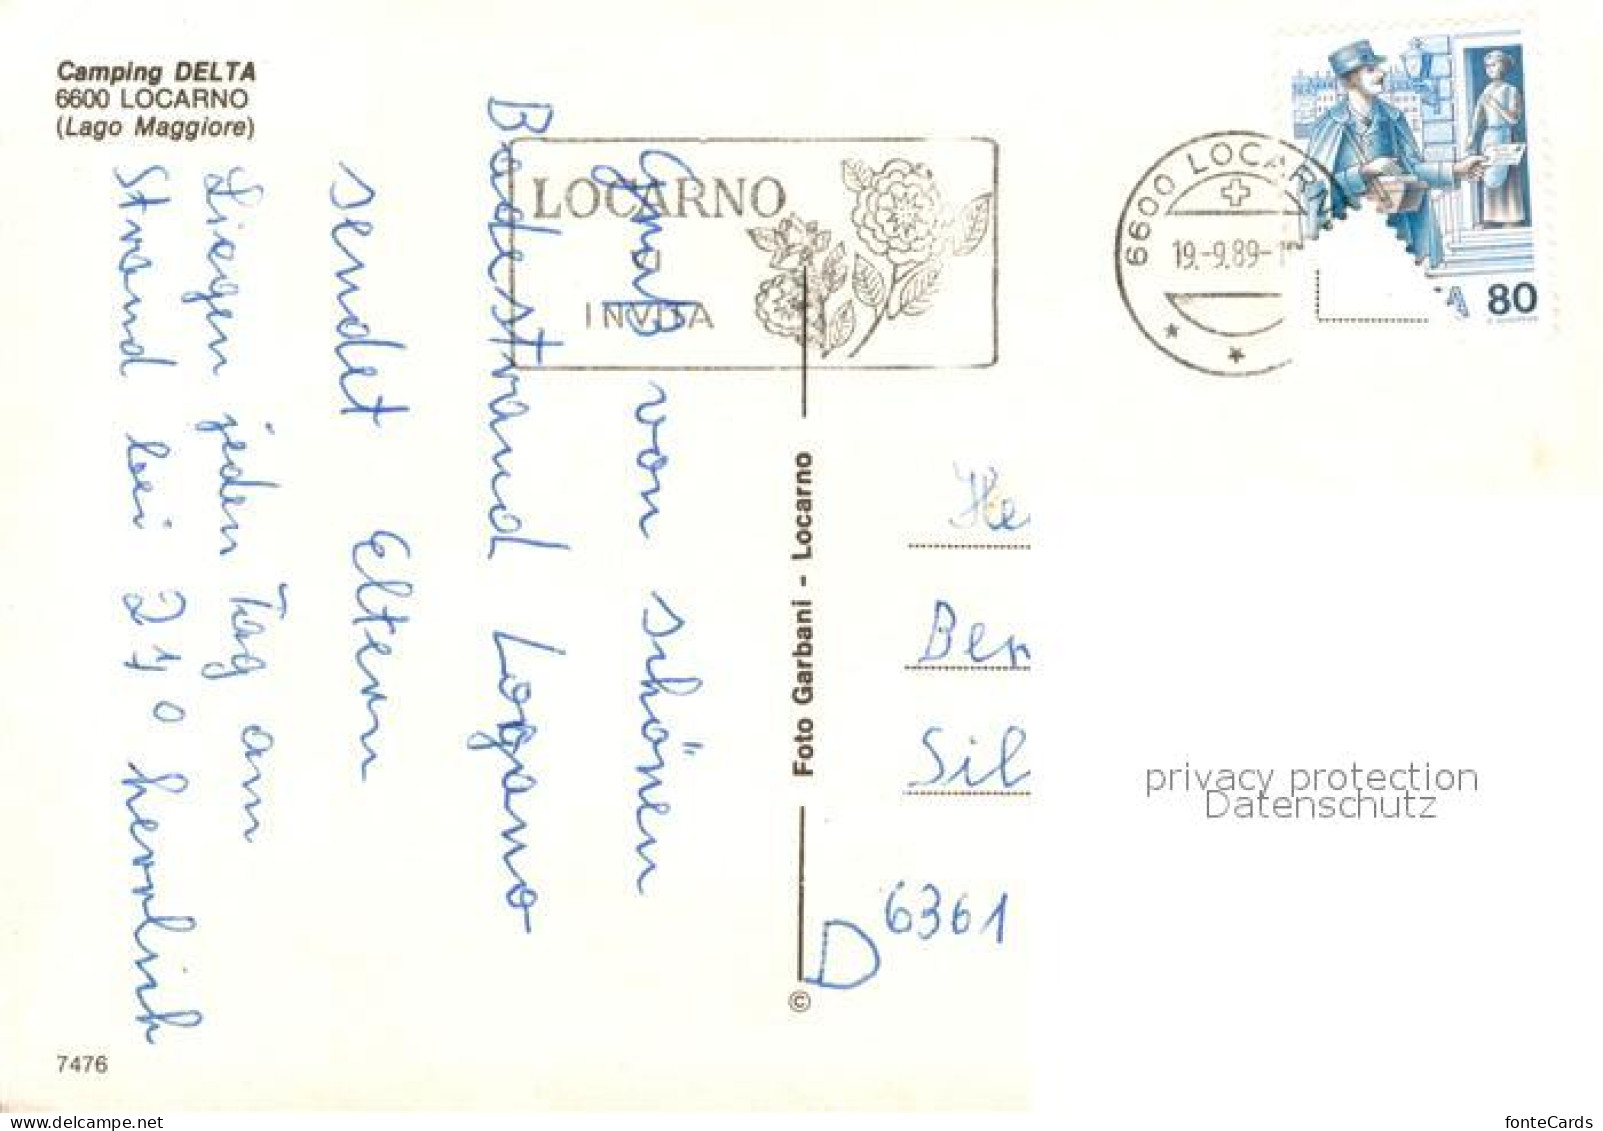 Camping DELTA
6600 LOCARNO
(Lago Maggiore)
Gruß von schönen
Badestrand Logano
sendet Eltern
Liegen jeden Tag am
Strand bei 24° herrlich
LOCARNO
VI
INVITA
6600 LOCARN
19.-9.89-1
80
Foto Garbani - Locarno
©
He
Ber
Sil
D 6361
privacy protection
Datenschutz
7476
fonteCards